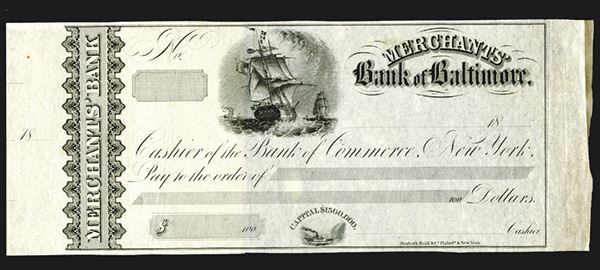 MERCHANTS' BANK
No.
MERCHANTS'
Bank of Baltimore.
18
18
Cashier of the Bank of Commerce, New York,
Pay to the order of
100 Dollars.
$ 100
CAPITAL $1500,000.
Cashier.
& New York